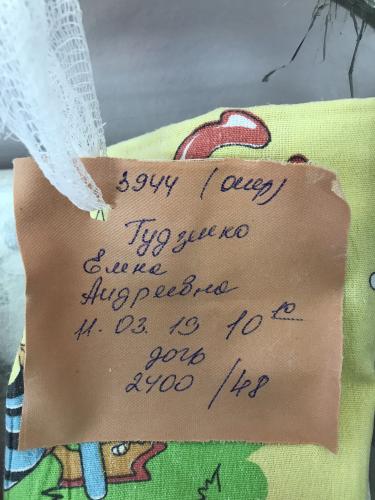 3944 (опер)
Гудзенко
Елена
Андреевна
11.03.19 10 10
дочь
2400/48